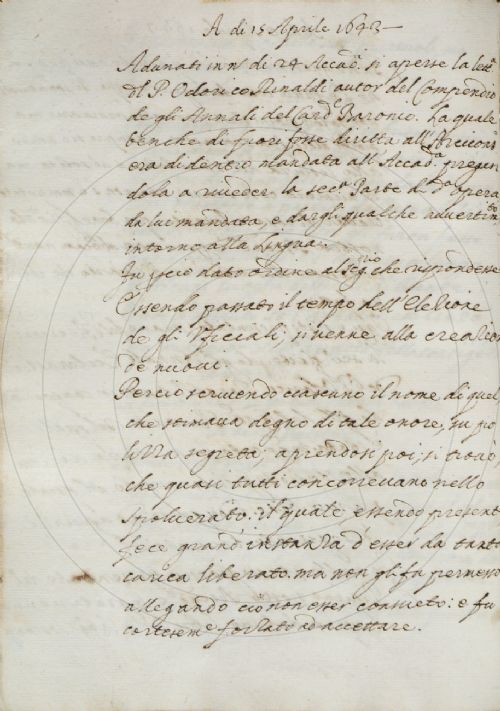 A di 15 Aprile 1643
Adunati in n.º di 24 Accad.ci si aperse la let.ª
del P. Odorico Rinaldi autor del Compendio
de gli Annali del Card.l Baronio. La quale
benche di fuori fosse diritta all'Arcicons.
era di dentro mandata all'Accad.ª pregan
dola a riveder la sec.ª Parte d.ª opera
da lui mandata, e dargli qualche advertim.to
intorno alla Lingua.
Fu perciò dato ordine al Seg.rio che rispondesse
Essendo passato il tempo dell'Elezione
de gli Vficiali, si venne alla creazion
de nuovi
Perciò scrivendo ciascuno il nome di quel
che stimava degno di tale onore, su po
lizza segreta, aprendosi poi, si trovò
che quasi tutti concorrevano nello
Spolverato. il quale, essendo present
fece grand'instanza d'esser da tanto
carica liberato. ma non gli fu permesso
allegando ciò non esser consueto: e fu
cortesem.e forzato ad accettare.